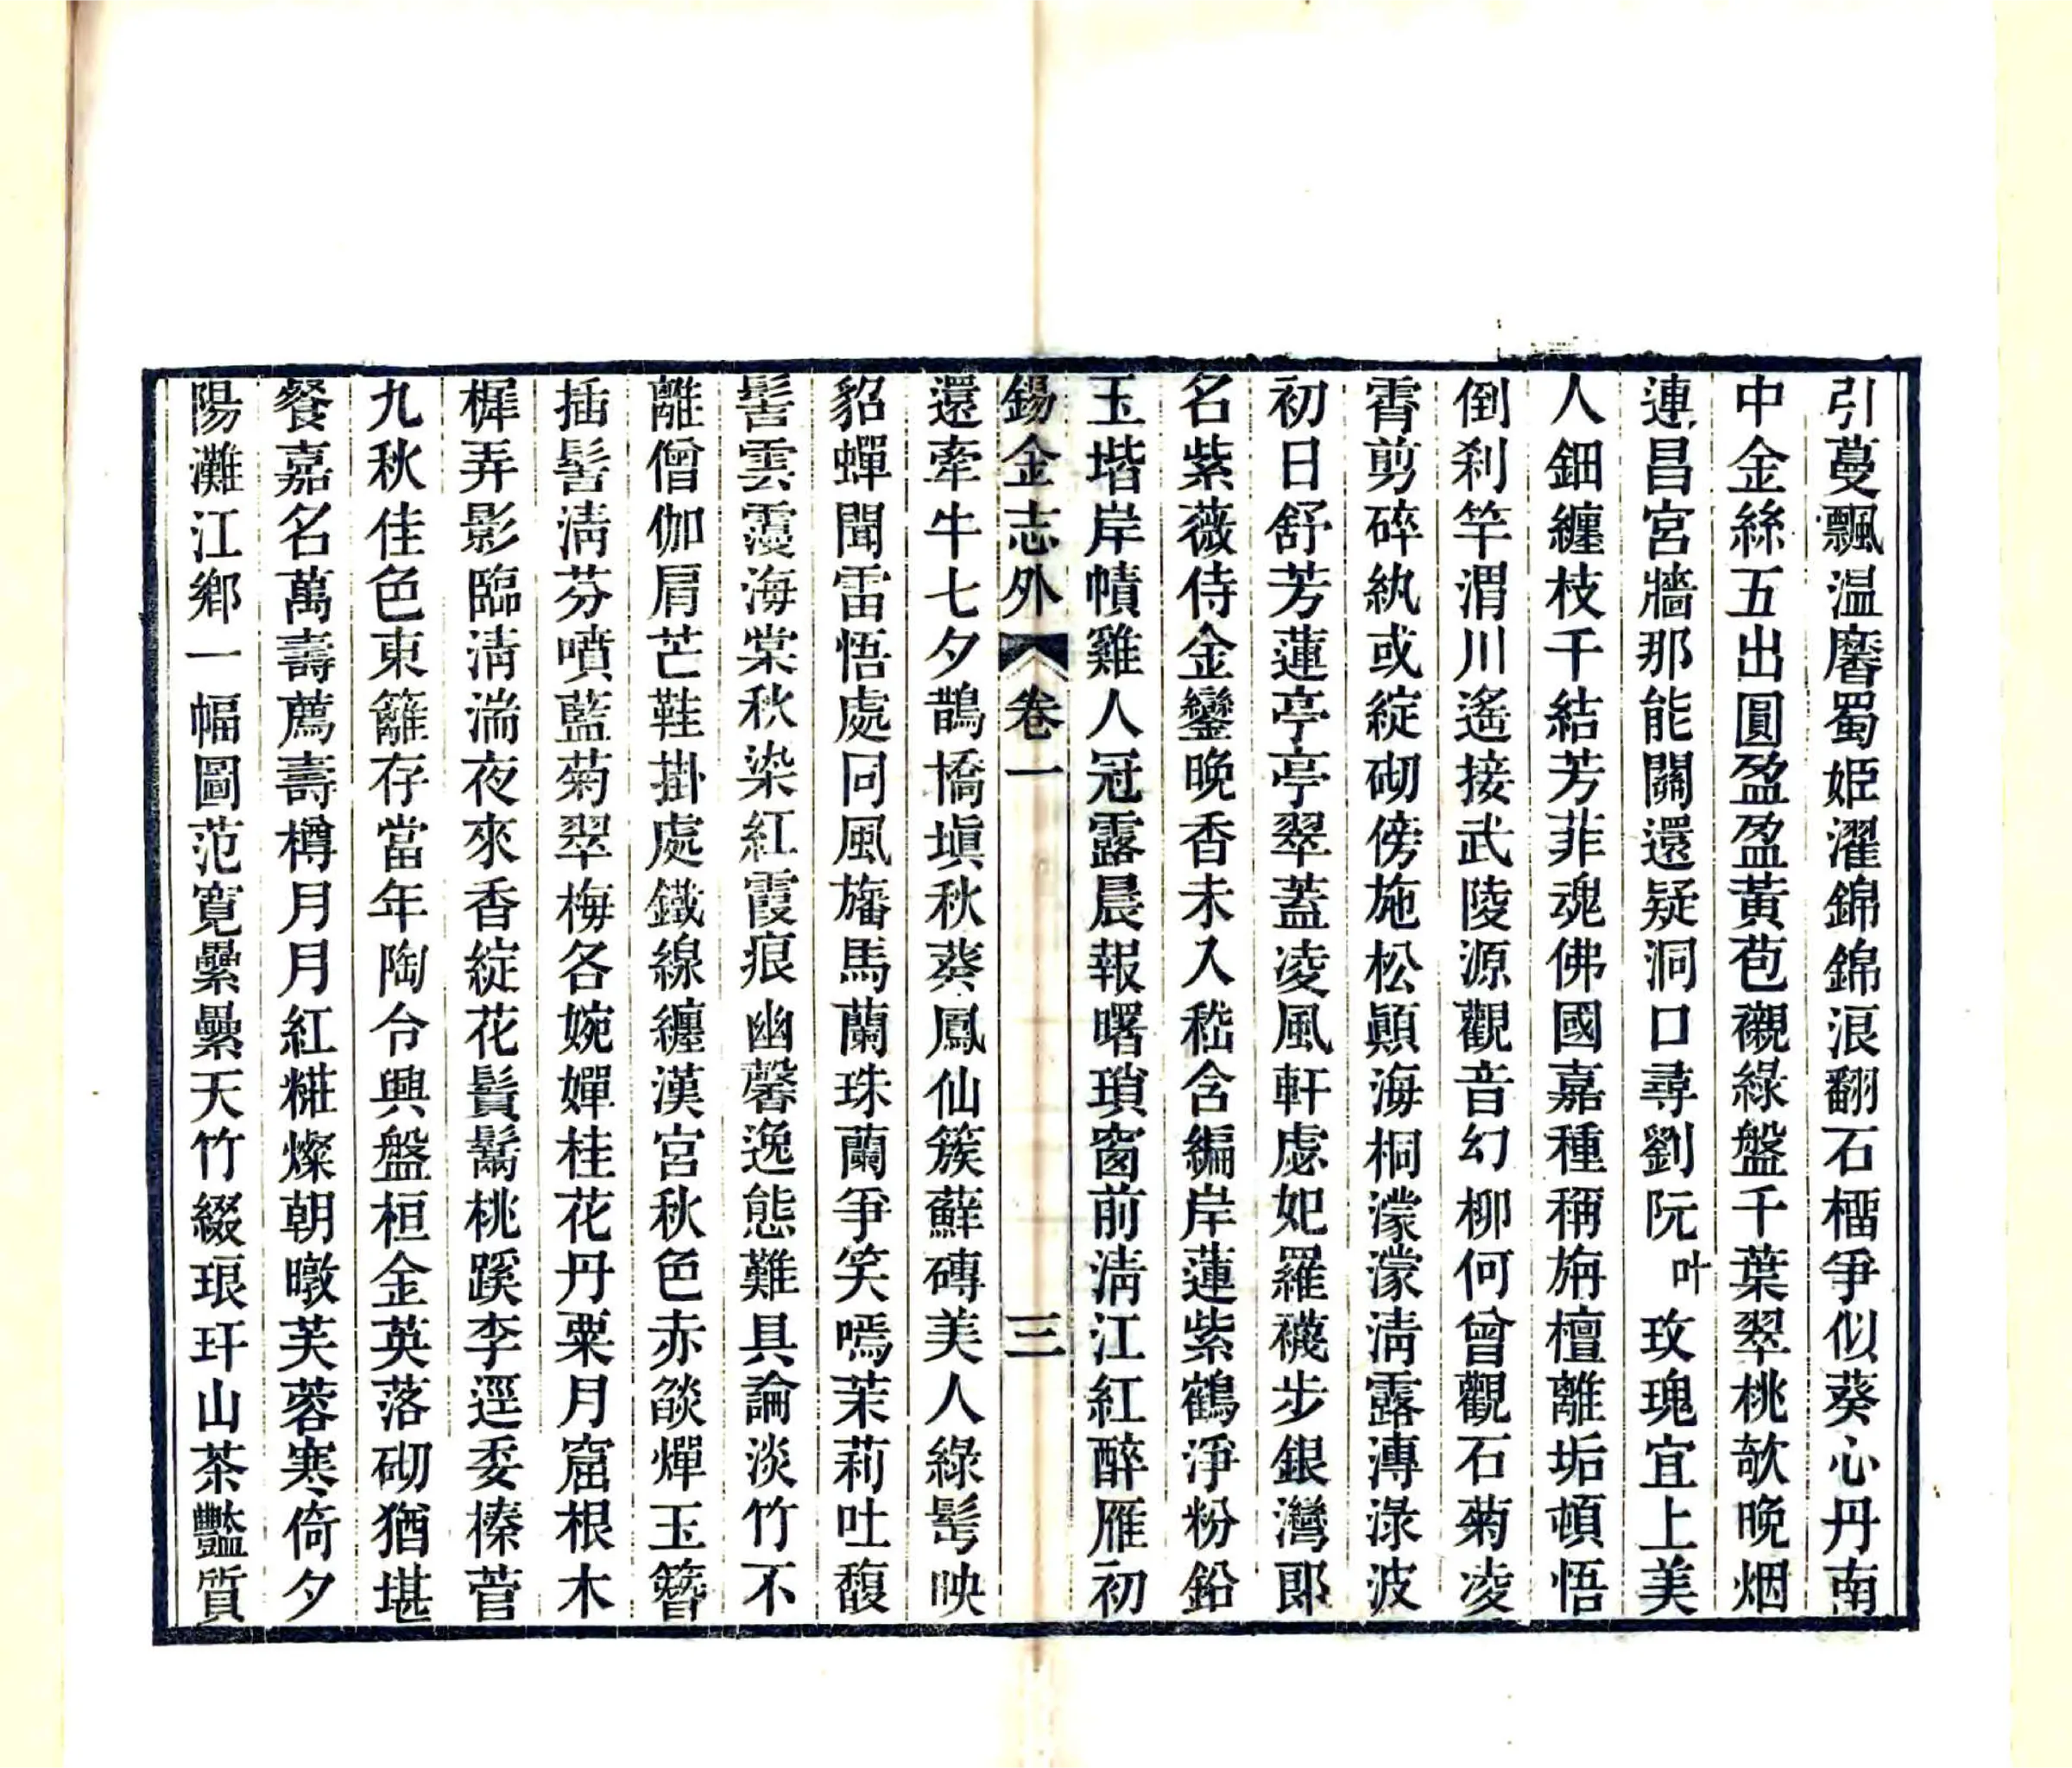 引蔓飄温馨蜀姬濯錦錦浪翻石橊爭似葵心丹南
中金絲五出圓盈盈黃苞襯綠盤千葉翠桃欹晩烟
連昌宮牆那能關還疑洞口尋劉阮叶玫瑰宜上美
人鈿纏枝千結芳菲魂佛國嘉種稱旃檀離垢頓悟
倒刹竿渭川遙接武陵源觀音幻柳何曾觀石菊凌
霄剪碎紈或綻砌傍施松顚海桐濛濛淸露溥淥波
初日舒芳蓮亭亭翠蓋凌風軒虙妃羅襪步銀灣郎
名紫薇侍金鑾晩香未入嵇含編岸蓮紫鶴淨粉鉛
玉堦岸幘雞人冠露晨報曙瑣窗前淸江紅醉雁初
錫金志外 卷一 三
還牽牛七夕鵲橋塡秋葵鳳仙簇蘚磚美人綠髩映
貂蟬聞雷悟處同風旛馬蘭珠蘭爭笑嘕茉莉吐馥
髻雲霞海棠秋染紅霞痕幽馨逸態難具論淡竹不
離僧伽肩芒鞋掛處鐵線纏漢宮秋色赤燄燀玉簪
插髻淸芬噴藍菊翠梅各婉嬋桂花丹粟月窟根木
樨弄影臨淸湍夜來香綻花鬢鬌桃蹊李逕委榛菅
九秋佳色東籬存當年陶令興盤桓金英落砌猶堪
餐嘉名萬壽薦壽樽月月紅糚燦朝暾芙蓉寒倚夕
陽灘江鄉一幅圖范寬纍纍天竹綴琅玕山茶豔質